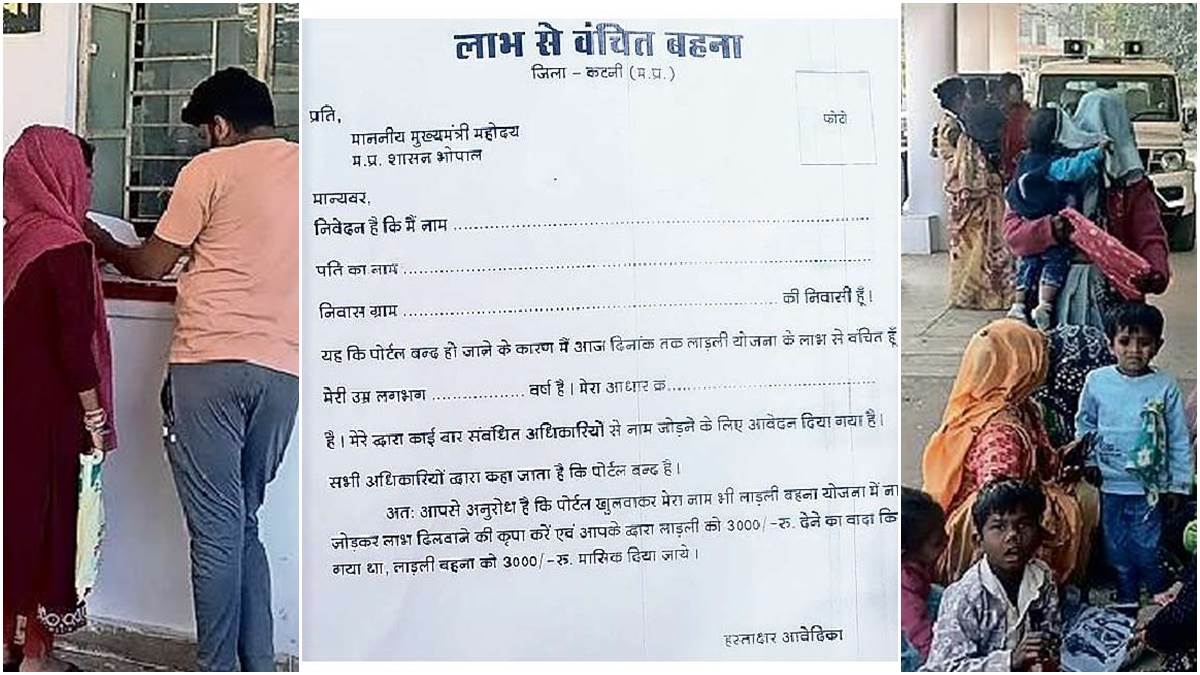 लाभ से वंचित बहना
जिला – कटनी (म.प्र.)
फोटो
प्रति,
माननीय मुख्यमंत्री महोदय
म.प्र. शासन भोपाल
मान्यवर,
निवेदन है कि मैं नाम ........................................
पति का नाम ........................................
निवास ग्राम ........................................ की निवासी हूँ।
यह कि पोर्टल बन्द हो जाने के कारण मैं आज दिनांक तक लाड़ली योजना के लाभ से वंचित हूँ
मेरी उम्र लगभग .................. वर्ष है। मेरा आधार क्र........................................
है। मेरे द्वारा काई बार संबंधित अधिकारियों से नाम जोड़ने के लिए आवेदन दिया गया है।
सभी अधिकारियों द्वारा कहा जाता है कि पोर्टल बन्द है।
अतः आपसे अनुरोध है कि पोर्टल खुलवाकर मेरा नाम भी लाड़ली बहना योजना में
जोड़कर लाभ दिलवाने की कृपा करें एवं आपके द्वारा लाड़ली को 3000/-रु. देने का वादा
गया था, लाड़ली बहना को 3000/-रु. मासिक दिया जाये।
हस्ताक्षर आवेदिका